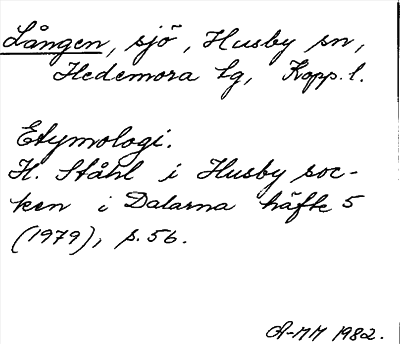 Lången, sjö, Husby sn,
Hedemora tg, Kopp. l.
Etymologi.
H. Ståhl i Husby soc-
ken i Dalarna häfte 5
(1979), s. 56.
A-MM 1982.